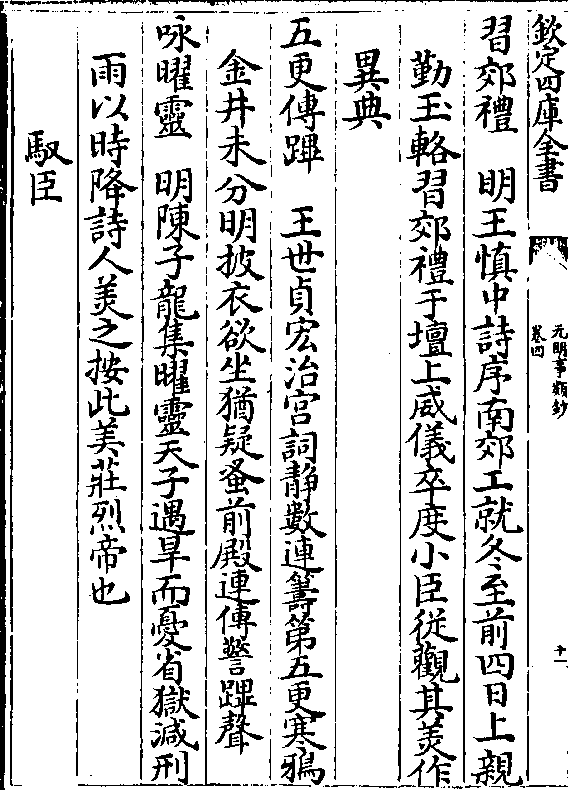 欽定四庫全書
元明事類鈔
卷四
十一
習郊禮　明王慎中詩序南郊工就冬至前四日上親
勤玉輅習郊禮于壇上威儀卒度小臣從觀其美作
異典
五更傳蹕　王世貞宏治宫詞静數連籌第五更寒鴉
金井未分明披衣欲坐猶疑蚤前殿連傳警蹕聲
咏曜靈　明陳子龍集曜靈天子遇旱而憂省獄減刑
雨以時降詩人美之按此美莊烈帝也
馭臣